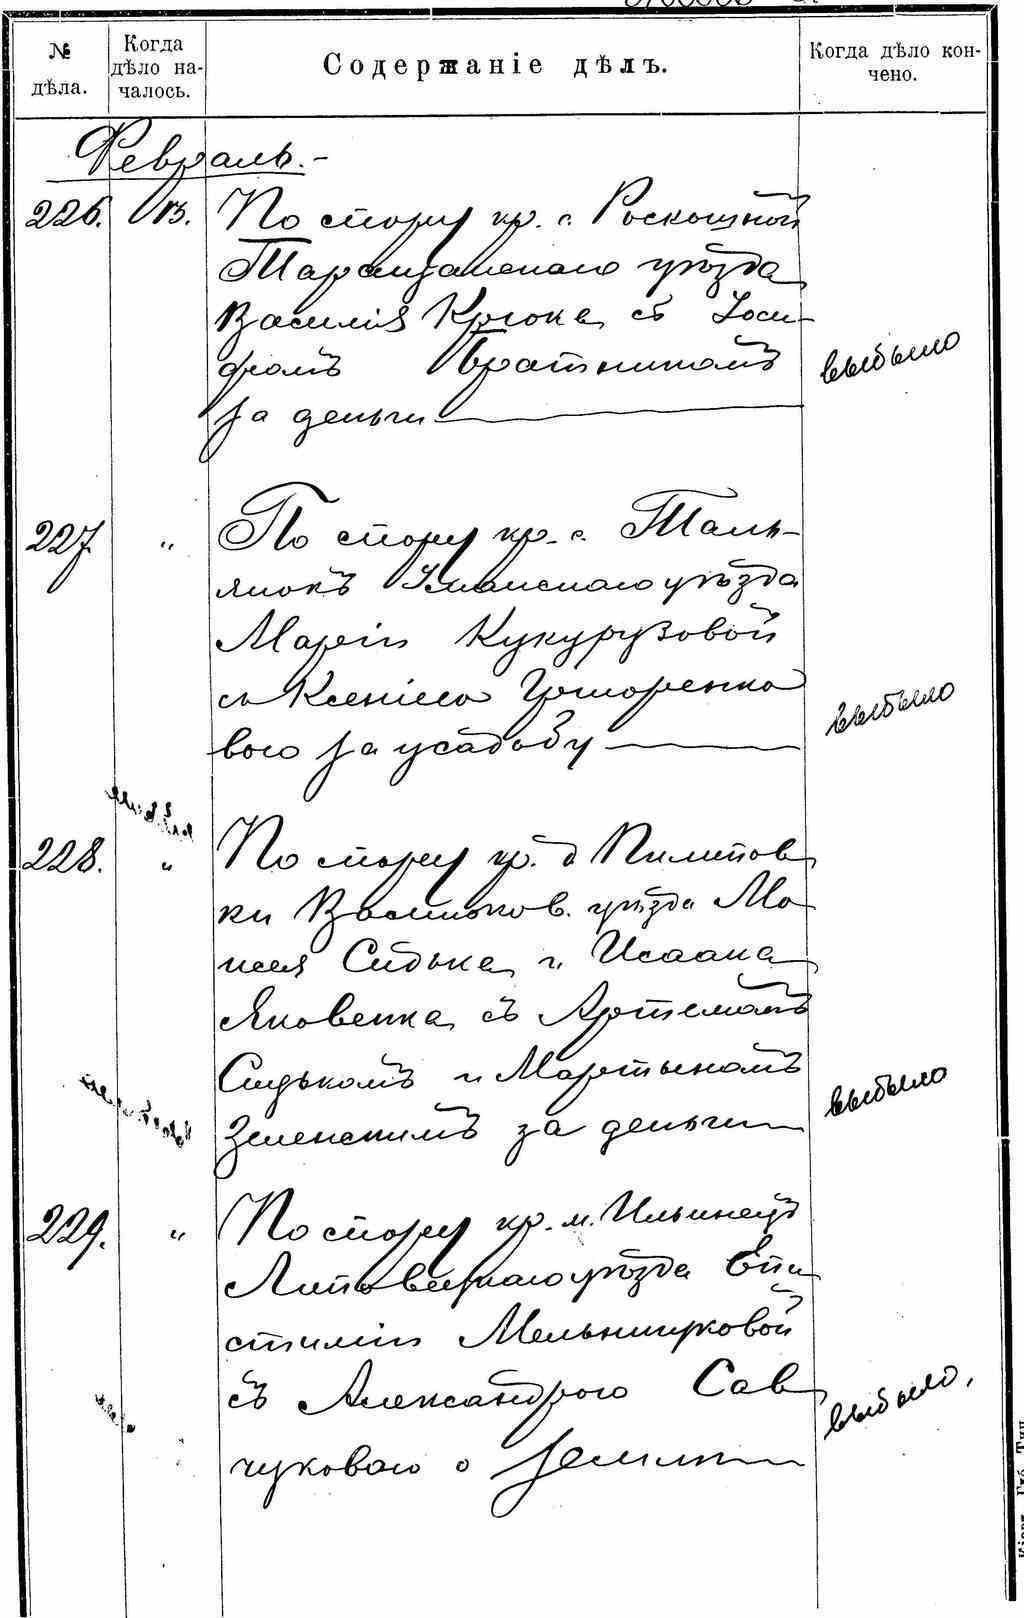 № дѣла.
Когда дѣло началось.
Содержаніе дѣлъ.
Когда дѣло кончено.
Февраль.-
226. 13. По спору кр. с. Роскошной
Таращанскаго уѣзда
Василія Крюка съ Іоси-
фомъ Братникомъ
за деньги
выбыло
227. " По спору кр. с. Таль-
янокъ Уманскаго уѣзда
Маріи Кукурузовой
съ Ксеніею Григоренко
вою за усадьбу
выбыло
228. " По спору кр. д. Пилипов
ки Васильков. уѣзда Мо
исея Сидька и Исаака
Яковенка съ Артемомъ
Сидькомъ и Мартыномъ
Зеленскимъ за деньги
выбыло
229. " По спору кр. м. Ильинецъ
Липовецкаго уѣзда Епи
стиміи Мельничуковой
съ Александрою Сав
чуковою о земли
выбыло.